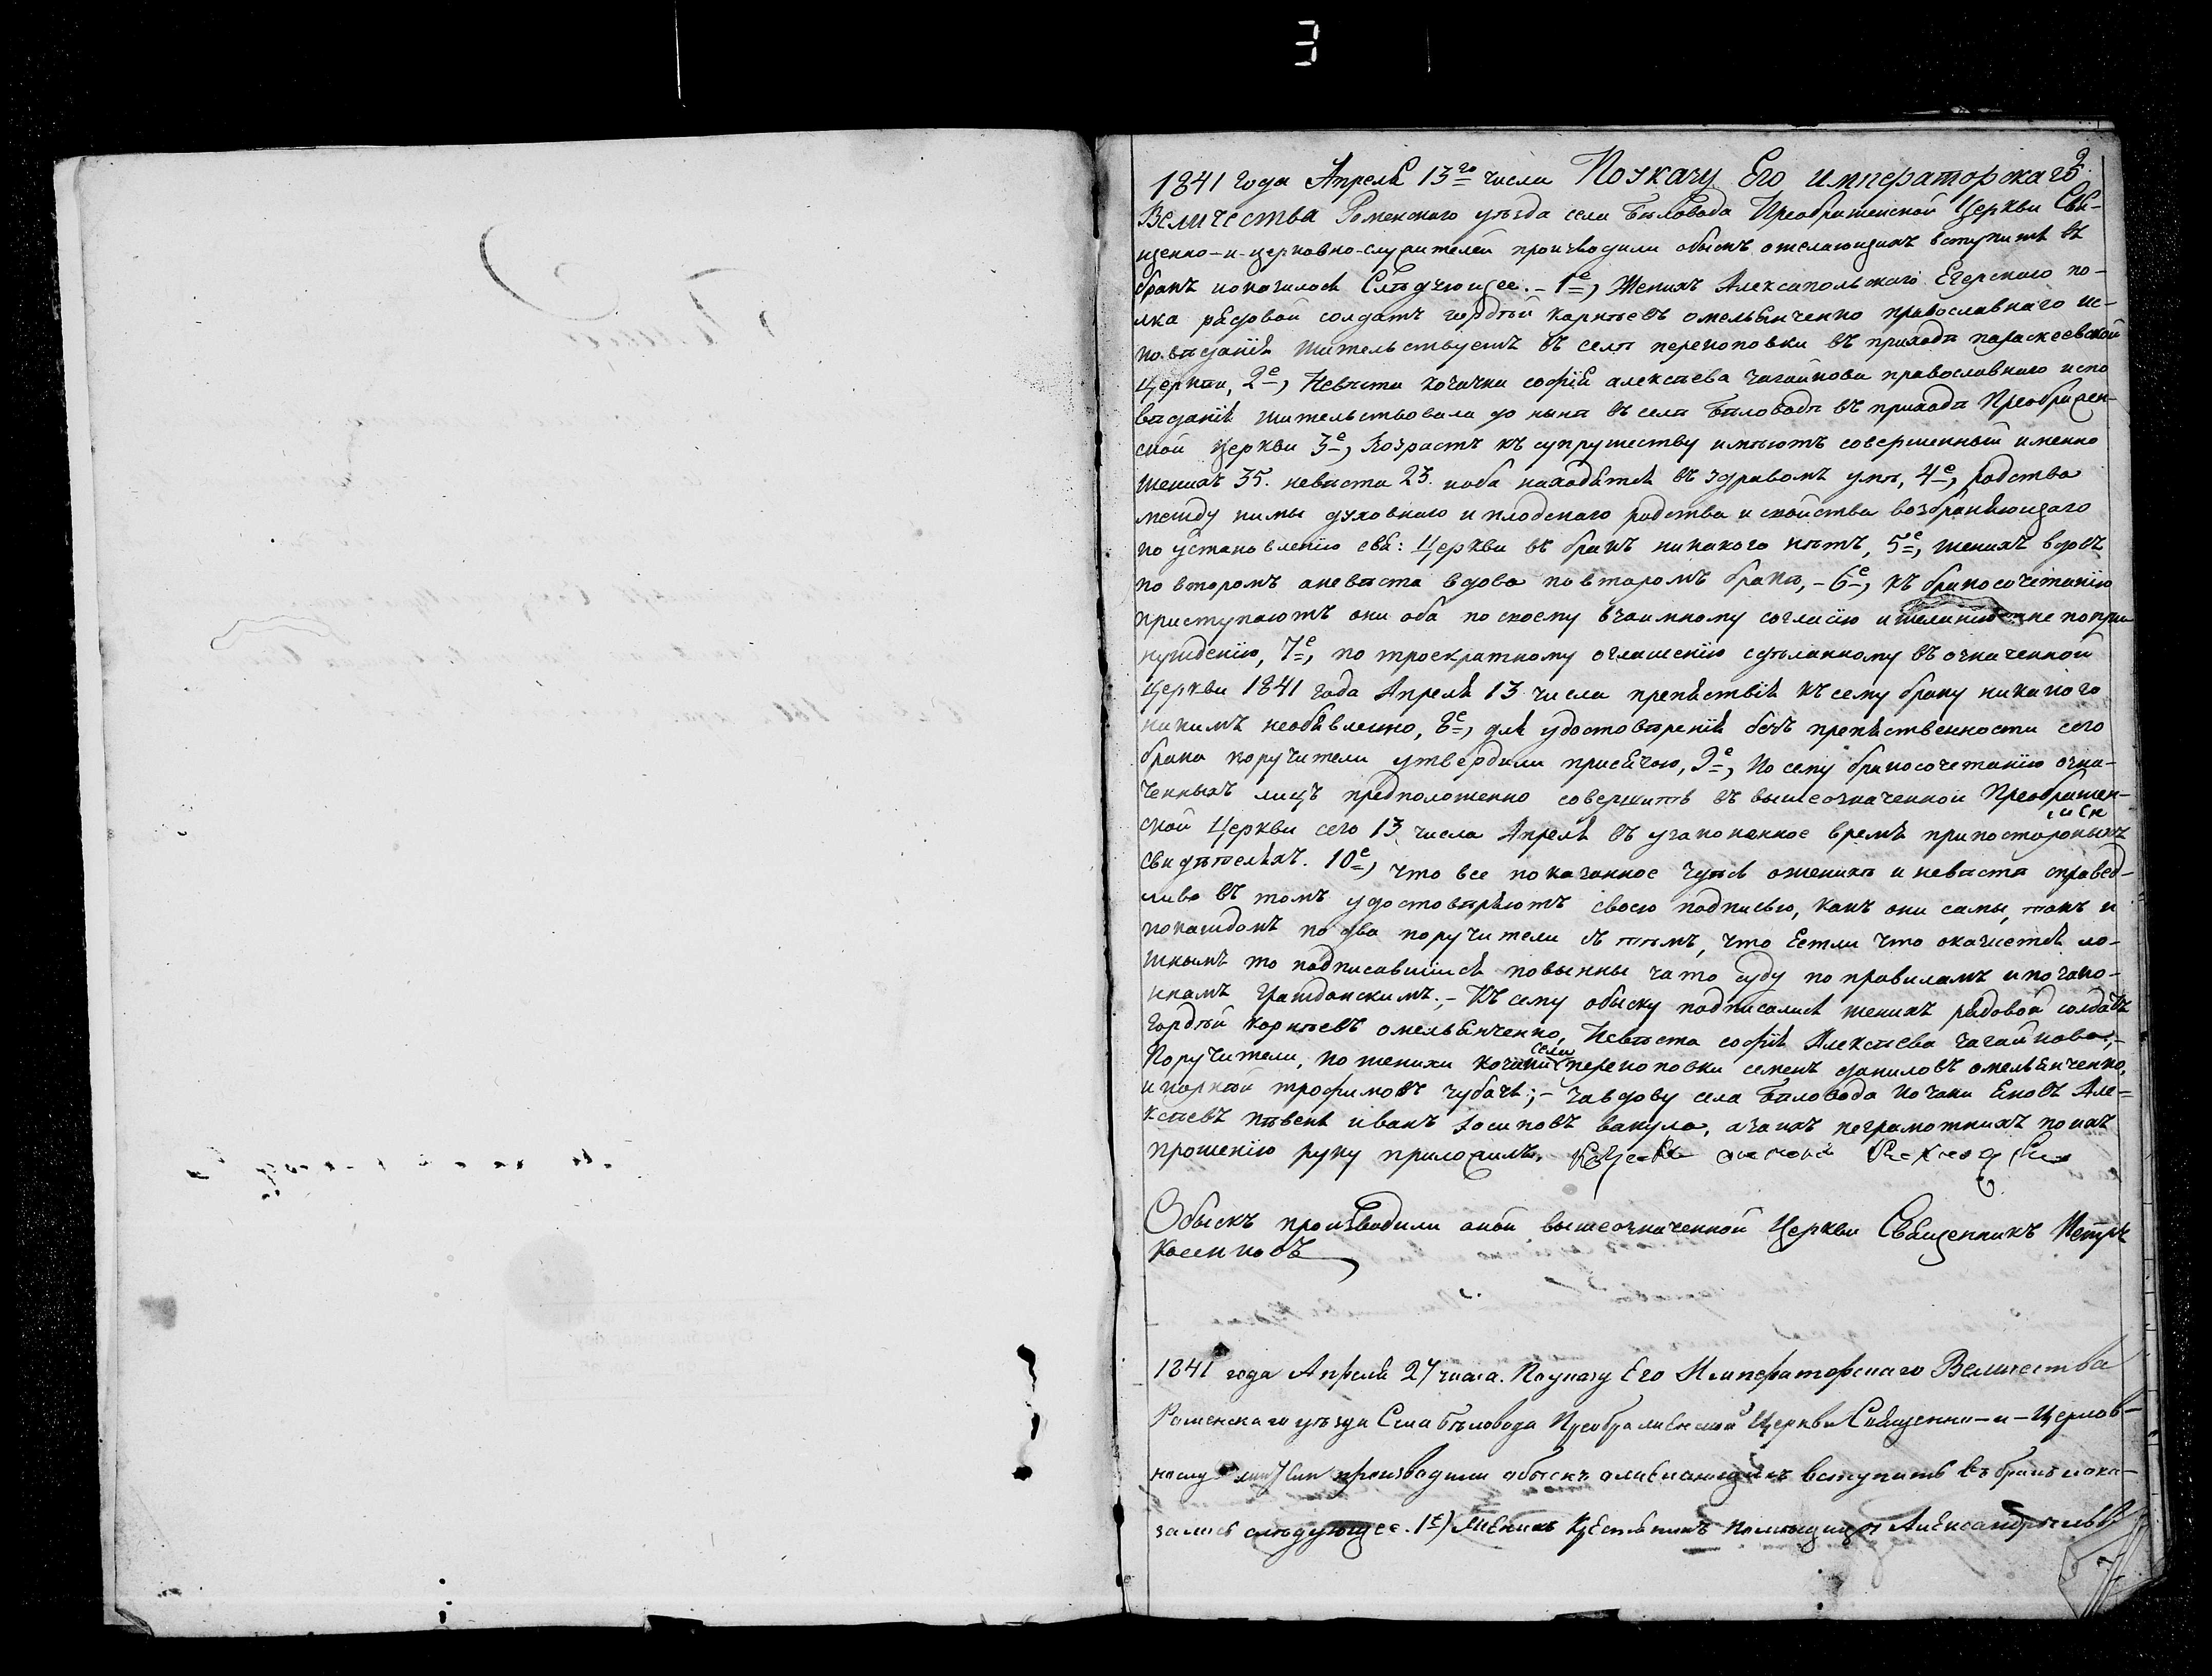 3
2.
1841 года Апреля 13го числа По указу Его императорскаго
Величества Роменского уезда села Бѣловода Преображенской Церкви Свя-
щенно-и-церковно-служителей производили обыскъ ожелающихъ вступить въ
бракъ ипоказалося Слѣдующее. - 1е, Женихъ Алексапольского Егерского по-
лка рядовой солдатъ гордѣй карпѣевъ омельянченко православнаго ис-
повѣданія жительствуетъ въ селѣ перекоповки въ приходѣ параскеевской
Церкви, 2е, Невѣста козачка софія алексѣева чагайнова православнаго испо
вѣданія жительствовала до нынѣ въ селѣ Бѣловодѣ въ приходѣ Преображен-
ской Церкви 3е, Возрастъ къ супружеству имѣютъ совершенный именно
женихъ 35. невѣста 23. иоба находятся въ здравомъ умѣ, 4е, родства
между нимы духовнаго и плодскаго родства и свойства возбраняющаго
по установленію свя: Церкви въ бракъ никакого нѣтъ, 5е, женихъ вдовъ
по второмъ аневѣста вдова повторомъ бракѣ, - 6е, къ бракосочетанію
приступаютъ они оба по своему взаимному согласію ижеланію ане попри
нуждению, 7е, по троекратному оглашенію сдѣланному въ означенной
Церкви 1841 года Апреля 13 числа препятствія къ сему браку никакого
никимъ необявленно, 8е, для удостовѣренія безъ препятственности сего
брака поручители утвердили присягою, 9е, По сему бракосочетанію озна-
ченныхъ лицъ предположенно совершить въ вышеозначенной Преображен-
ской Церкви сего 13 числа Апреля въ узаконенное время припостороныхъ
свидѣтеляхъ. 10е, что все показанное здѣся оженихѣ и невѣстѣ справед-
ливо въ томъ удостовѣряютъ своею подписью, какъ они самы, такъ и
покаждомъ по два поручители съ тѣмъ, что Естли что окажется ло-
жнымъ то подписавшіися повынны зато суду по правиламъ ипозако-
намъ Гражданскимъ. - Къ сему обыску подписалися женихъ рядовой солдатъ
гордѣй карпѣевъ омельянченко, Невѣста софія Алексѣева чагайнова, -
Поручители, по женихи козаки села перекоповки семенъ даниловъ омельянченко,
и карпѣй трофимовъ чубачъ; - завдову села Бѣловода козаки Еновъ Але=
ксѣевъ пивень иванъ Іосиповъ вакула, азаихъ неграмотнихъ поихъ
прошенію руку приложилъ.
Обыскъ производили оной вышеозначенной Церкви Священникъ Петръ

1841 года Апреля 27 числа. По указу Его Императорскаго Величества
Роменскаго уѣзда Села Бѣловода Преображенской Церкви Священно-и-Церков-
нослужители производили обыскъ ожелающихъ вступить въ бракъ ипока-
залось слѣдующее. 1е) Женихъ Крестянинъ Помѣщицы